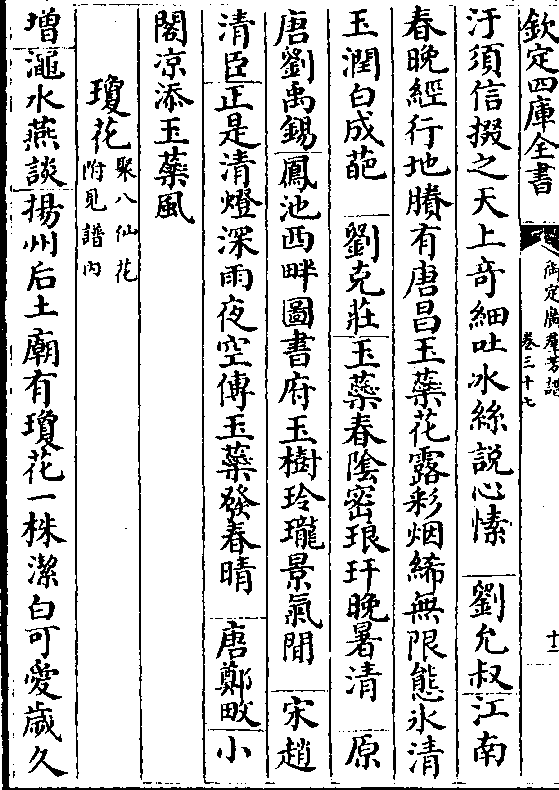 欽定四庫全書
御定廣羣芳譜
卷三十七
十三
汙須信掇之天上竒細吐冰絲説心愫　劉允叔江南
春晚經行地賸有唐昌玉蘂花露彩烟絺無限態氷清
玉潤白成葩　劉克莊玉蘂春陰密琅玕晚暑清　原
唐劉禹錫鳳池西畔圖書府玉樹玲瓏景氣閒　宋趙
清臣正是清燈深雨夜空傳玉蘂發春晴　唐鄭畋小
閣凉添玉蘂風
瓊花聚八仙花附見譜内
增澠水燕談揚州后土廟有瓊花一株潔白可愛歲久